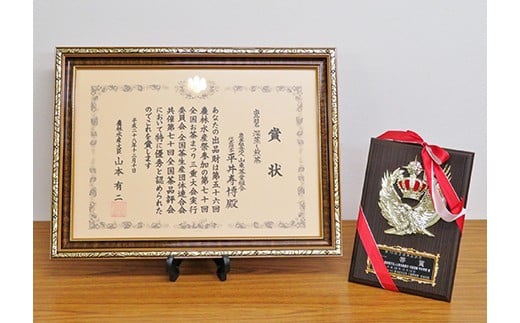 賞状
出品財名 深蒸し煎茶
平井孝博殿
あなたの出品財は第五十六回
農林水産祭参加の第七十回
全国お茶まつり三重大会実行
委員会・全国茶生産団体連合会
共催第七十回全国茶品評会
において特に優秀と認められた
のでこれを賞します
平成二十八年十一月十日
農林水産大臣 山本有二